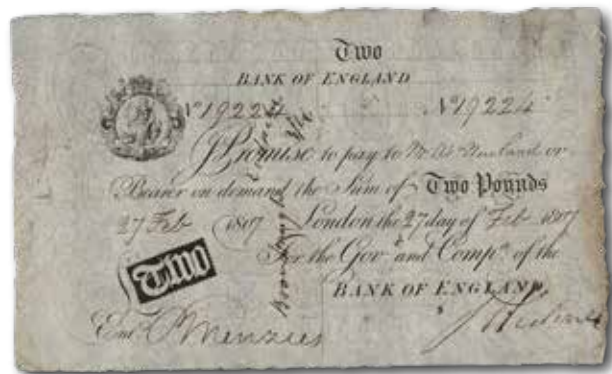 Two
BANK OF ENGLAND
No 19224 No 19224
I Promise to pay to Mr. Abm. Newland or
Bearer on demand the Sum of Two Pounds
27 Feb 1807 London the 27 day of Feb 1807
For the Govr and Compa of the
BANK OF ENGLAND.
Two
Entd Menzies